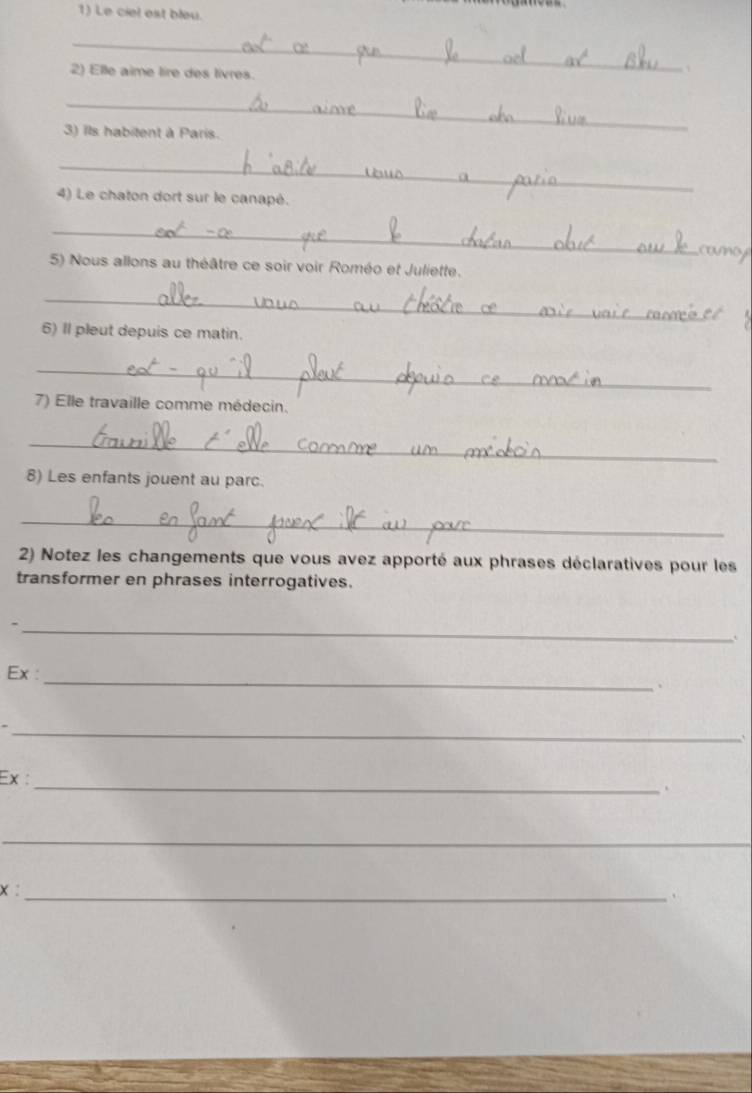 1) Le ciel est bleu.
est ce que le ciel est bleu.
2) Elle aime lire des livres.
aime lire des livre
3) Ils habitent à Paris.
h'abite vous a paris
4) Le chaton dort sur le canapé.
est-ce que le chaton dort sur le canap
5) Nous allons au théâtre ce soir voir Roméo et Juliette.
allez vous au théâtre ce soir voir roméo et
6) Il pleut depuis ce matin.
est-qu'il pleut depuis ce matin
7) Elle travaille comme médecin.
travaille t'elle comme un médecin
8) Les enfants jouent au parc.
les enfant jouent ils au parc
2) Notez les changements que vous avez apporté aux phrases déclaratives pour les
transformer en phrases interrogatives.
-
Ex :
-
Ex :
x :